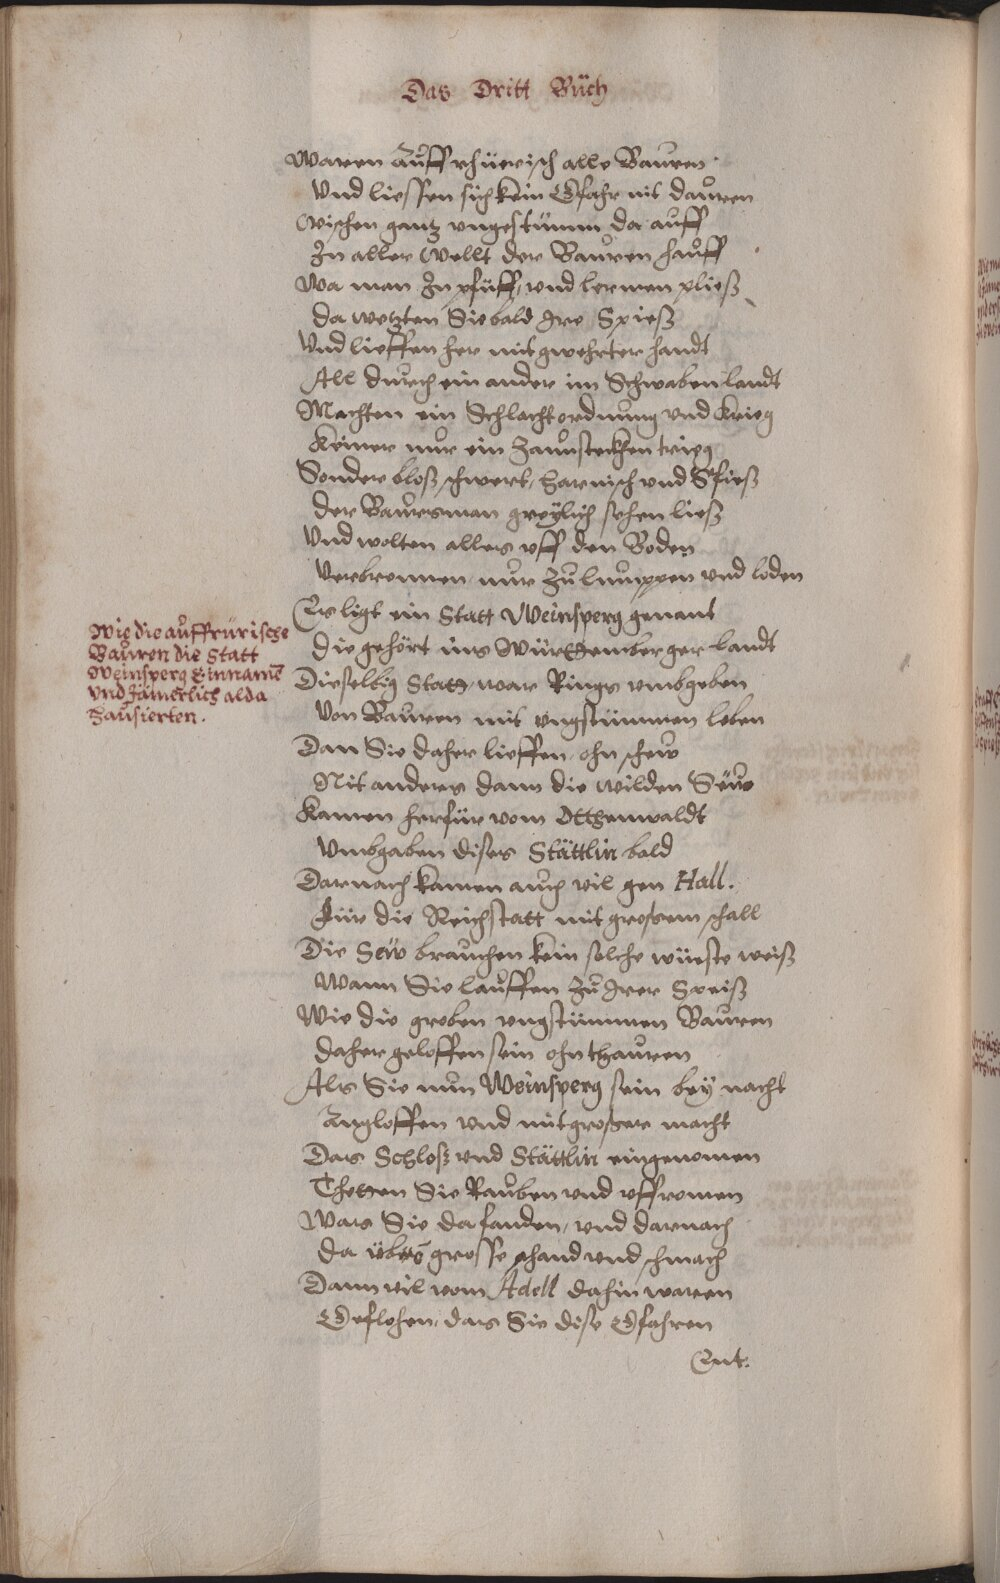 Das Dritt Bůch
Waren Auffrhüerisch alle Bauren
Vnd liessen sich kein Gfahr nit dauren
Wischen gantz vngestümm da auff
In aller Wellt der Bauren hauff
Wa man In pfüff, vnd lermen pließ
Da wetzten Sie bald Ire Spieß
Vnd lieffen her mit gwehrter handt
All durch ein ander im Schwaben landt
Machten ein Schlachtordnung vnd krieg
Keiner nur ein Zaunstecken trieg
Sonder bloß schwert, harnisch vnd Spieß
Der Baursman greylich sehen ließ
Vnd wolten alles vff den Boden
Verbrennen nur zu lumppen vnd loden
Es ligt ein Statt Weinsperg genant
Die gehört ins Württemberger landt
Wie die auffrürische
Bauren die Statt
Weinsperg Einnamē
vnd Jämerlich alda
hausierten.
Dieselbig Statt, war Rings vmbgeben
Von Bauren mit vngstümmen leben
Dan Sie daher lieffen ohn schew
Nit anders dann die wilden Sew
Kamen herfür vom Otthenwaldt
Vmbgaben dises Stättlin bald
Darnach kamen auch vil gen Hall.
Für die Reichstatt mit grossem schall
Die Sew brauchen kein solche wüeste weiß
Wann Sie lauffen zu Irer Speiß
Wie die groben vngstümmen Bauren
Daher geloffen sein ohn thauren
Als Sie nun Weinsperg sein bey nacht
Angloffen vnd mit grosser macht
Das Schloß vnd Stättlin eingenomen
Thetten Sie Rauben vnd vffromen
Was Sie da fanden, vnd darnach
Da übtē grosse schand vnd schmach
Dann vil vom Adell dahin waren
Geflohen, das Sie dise Gfahren
Ent.